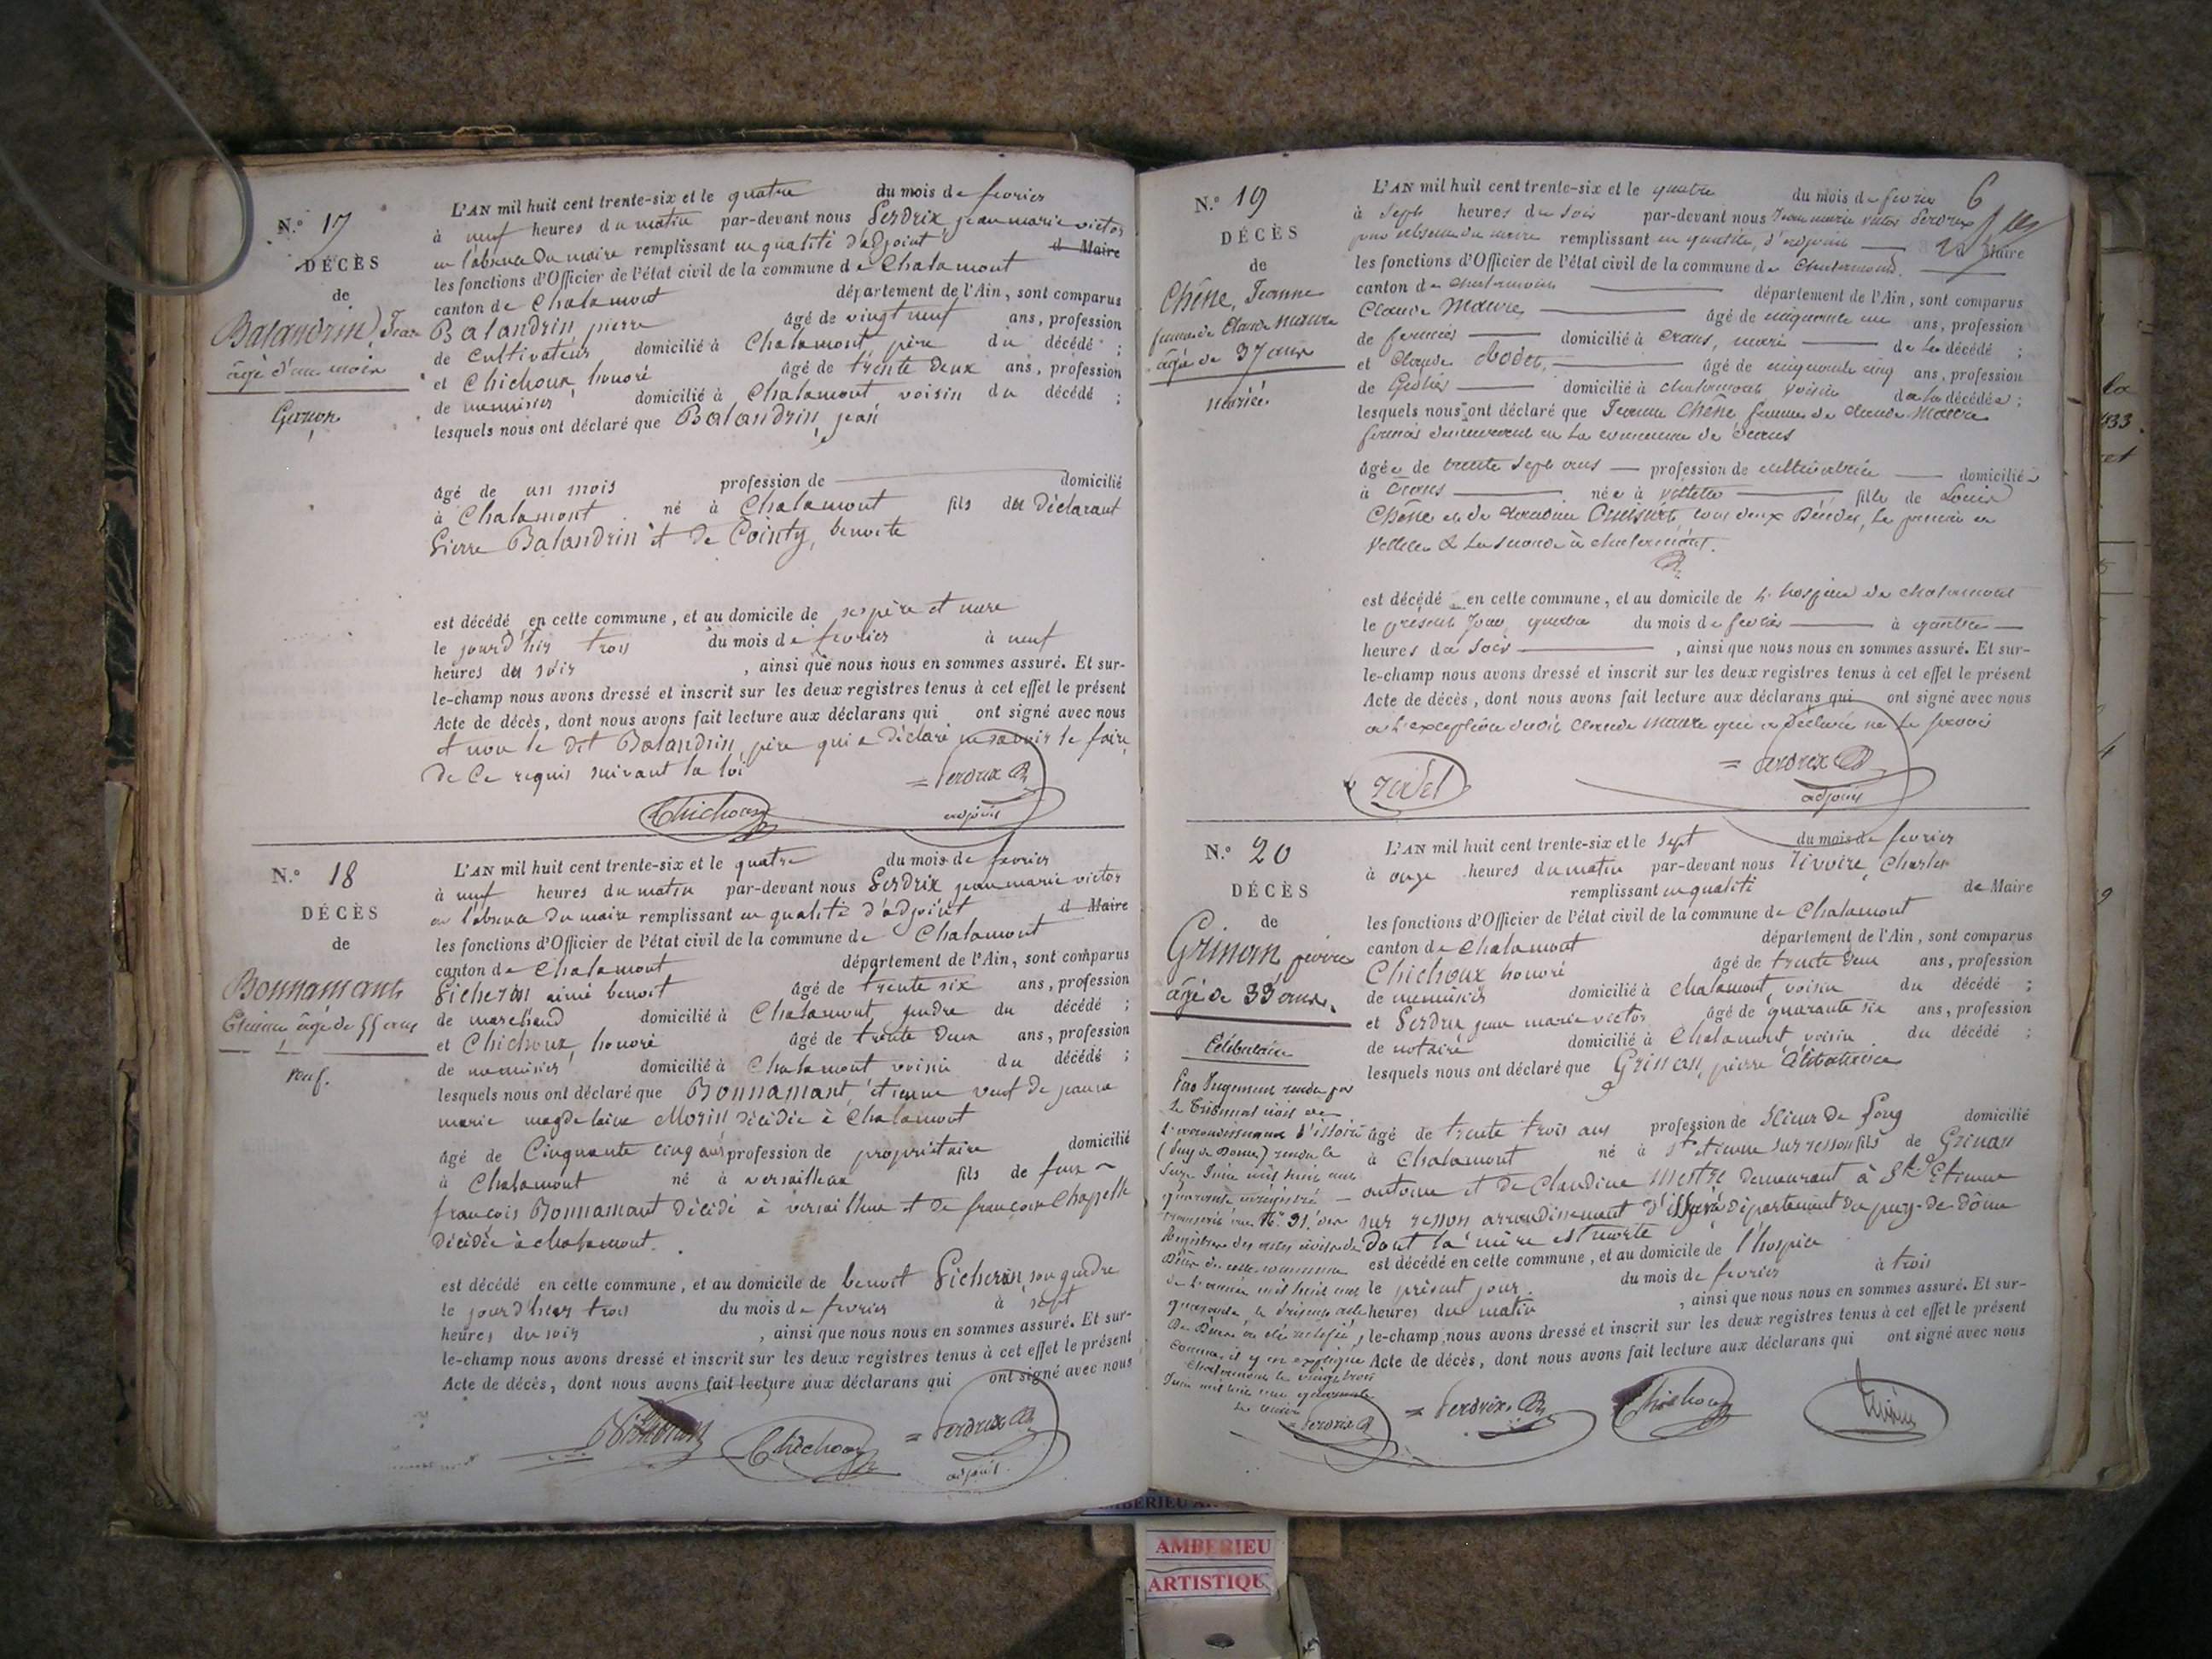 N.° 17
DÉCÈS
de
Balandrin, Jean
âgé d'un mois
Garçon
L'AN mil huit cent trente-six et le quatre du mois de fevrier
à neuf heures du matin par-devant nous Perdrix jean marie victor
en l'absence du maire remplissant en qualité d'adjoint d Maire
les fonctions d'Officier de l'état civil de la commune de Chalamont
canton de Chalamont département de l'Ain, sont comparus
Balandrin pierre âgé de vingt neuf ans, profession
de Cultivateur domicilié à Chalamont père du décédé ;
et Chichoux honoré âgé de trente deux ans, profession
de menuisier domicilié à Chalamont voisin du décédé ;
lesquels nous ont déclaré que Balandrin, jean
âgé de un mois profession de domicilié
à Chalamont né à Chalamont fils du Déclarant
Pierre Balandrin et de Pointy, benoite
est décédé en cette commune, et au domicile de ses père et mere
le jour d'hier trois du mois de fevrier à neuf
heures du soir , ainsi que nous nous en sommes assuré. Et sur-
le-champ nous avons dressé et inscrit sur les deux registres tenus à cet effet le présent
Acte de décès, dont nous avons fait lecture aux déclarans qui ont signé avec nous
et non le dit Balandrin, père qui a Déclaré ne savoir le faire
de Ce requis suivant la loi
Perdrix
Chichoux
adjoint
N.° 18
DÉCÈS
de
Bonnamant
Etienne âgé de 55 ans
veuf.
L'AN mil huit cent trente-six et le quatre du mois de fevrier
à neuf heures du matin par-devant nous Perdrix jean marie victor
en l'absence du maire remplissant en qualité d'adjoint d Maire
les fonctions d'Officier de l'état civil de la commune de Chalamont
canton de Chalamont département de l'Ain, sont comparus
Picheron aimé benoit âgé de trente six ans, profession
de marchand domicilié à Chalamont, gendre du décédé ;
et Chichoux, honoré âgé de trente deux ans, profession
de menuisier domicilié à Chalamont voisin du décédé ;
lesquels nous ont déclaré que Bonnamant, étienne veuf de jeanne
marie magdelaine Morin décédée à Chalamont
âgé de Cinquante cinq ans profession de propriétaire domicilié
à Chalamont né à versailleux fils de feux
francois Bonnamant décédé à versailleux et de francoise Chapelle
décédée à chalamont.
est décédé en cette commune, et au domicile de benoit Picheron, son gendre
le jour d'hier trois du mois de fevrier à sept
heures du soir , ainsi que nous nous en sommes assuré. Et sur-
le-champ nous avons dressé et inscrit sur les deux registres tenus à cet effet le présent
Acte de décès, dont nous avons fait lecture aux déclarans qui ont signé avec nous
Chichoux Perdrix
adjoint
6
N.° 19
DÉCÈS
de
Chêne, Jeanne
femme de Claude Maure
âgée de 37 ans
mariée.
L'AN mil huit cent trente-six et le quatre du mois de fevrier
à Sept heures du soir par-devant nous Jean marie victor Perdrix
pour absence du maire remplissant en qualité, d'adjoint Maire
les fonctions d'Officier de l'état civil de la commune de Chalamont.
canton de Chalamont département de l'Ain, sont comparus
Claude Maure, âgé de cinquante un ans, profession
de fermier domicilié à Crans, mari de la décédé ;
et Claude âgé de cinquante cinq ans, profession
de domicilié à Chalamont voisin de la décédée ;
lesquels nous ont déclaré que Jeanne Chêne femme de Claude Maure
fermier demeurant en la commune de Crans
âgée de trente sept ans profession de cultivatrice domicilié
à Crans née à Villette fille de Louis
Chêne et de tous deux Décédés, le premier à
Villette & la seconde à chalamont.
est décédé en cette commune, et au domicile de l'hospice de chalamont
le présent jour, quatre du mois de fevrier à quatre
heures du soir , ainsi que nous nous en sommes assuré. Et sur-
le-champ nous avons dressé et inscrit sur les deux registres tenus à cet effet le présent
Acte de décès, dont nous avons fait lecture aux déclarans qui ont signé avec nous
à l'exception dudit Claude Maure qui a Déclaré ne le savoir
Perdrix
adjoint
N.° 20
DÉCÈS
de
Grinan pierre
âgé de 33 ans.
Célibataire
Par Jugement rendu par
le Tribunal civil de
l'arrondissement d'issoire
(Puy de Dome) rendu le
Seize Juin mil huit cent
quarante enregistré
transcrit au N.° 31. des
Registres des actes civils de
Décès de cette commune
de l'année mil huit cent
quarante, le présent acte
de Décès a été rectifié,
comme il y est expliqué
Chalamont le vingt trois
Juin mil huit cent quarante
Le maire
Perdrix
L'AN mil huit cent trente-six et le sept du mois de fevrier
à onze heures du matin par-devant nous Rivoire, Charles
remplissant en qualité de Maire
les fonctions d'Officier de l'état civil de la commune de Chalamont
canton de Chalamont département de l'Ain, sont comparus
Chichoux honoré âgé de trente deux ans, profession
de menuisier domicilié à chalamont, voisin du décédé ;
et Perdrix jean marie victor âgé de quarante six ans, profession
de notaire domicilié à Chalamont voisin du décédé ;
lesquels nous ont déclaré que Grinan, pierre Célibataire
âgé de trente trois ans profession de Scieur de Long domicilié
à Chalamont né à St etienne sur resson fils de Grinan
antoine et de Claudine Mestre demeurant à St Etienne
sur resson arrondissement d'issoire département du puy-de-Dôme
dont la mère est morte
est décédé en cette commune, et au domicile de l'hospice
le présent jour du mois de fevrier à trois
heures du matin , ainsi que nous nous en sommes assuré. Et sur-
le-champ nous avons dressé et inscrit sur les deux registres tenus à cet effet le présent
Acte de décès, dont nous avons fait lecture aux déclarans qui ont signé avec nous
Perdrix Chichoux
AMBERIEU
ARTISTIQU